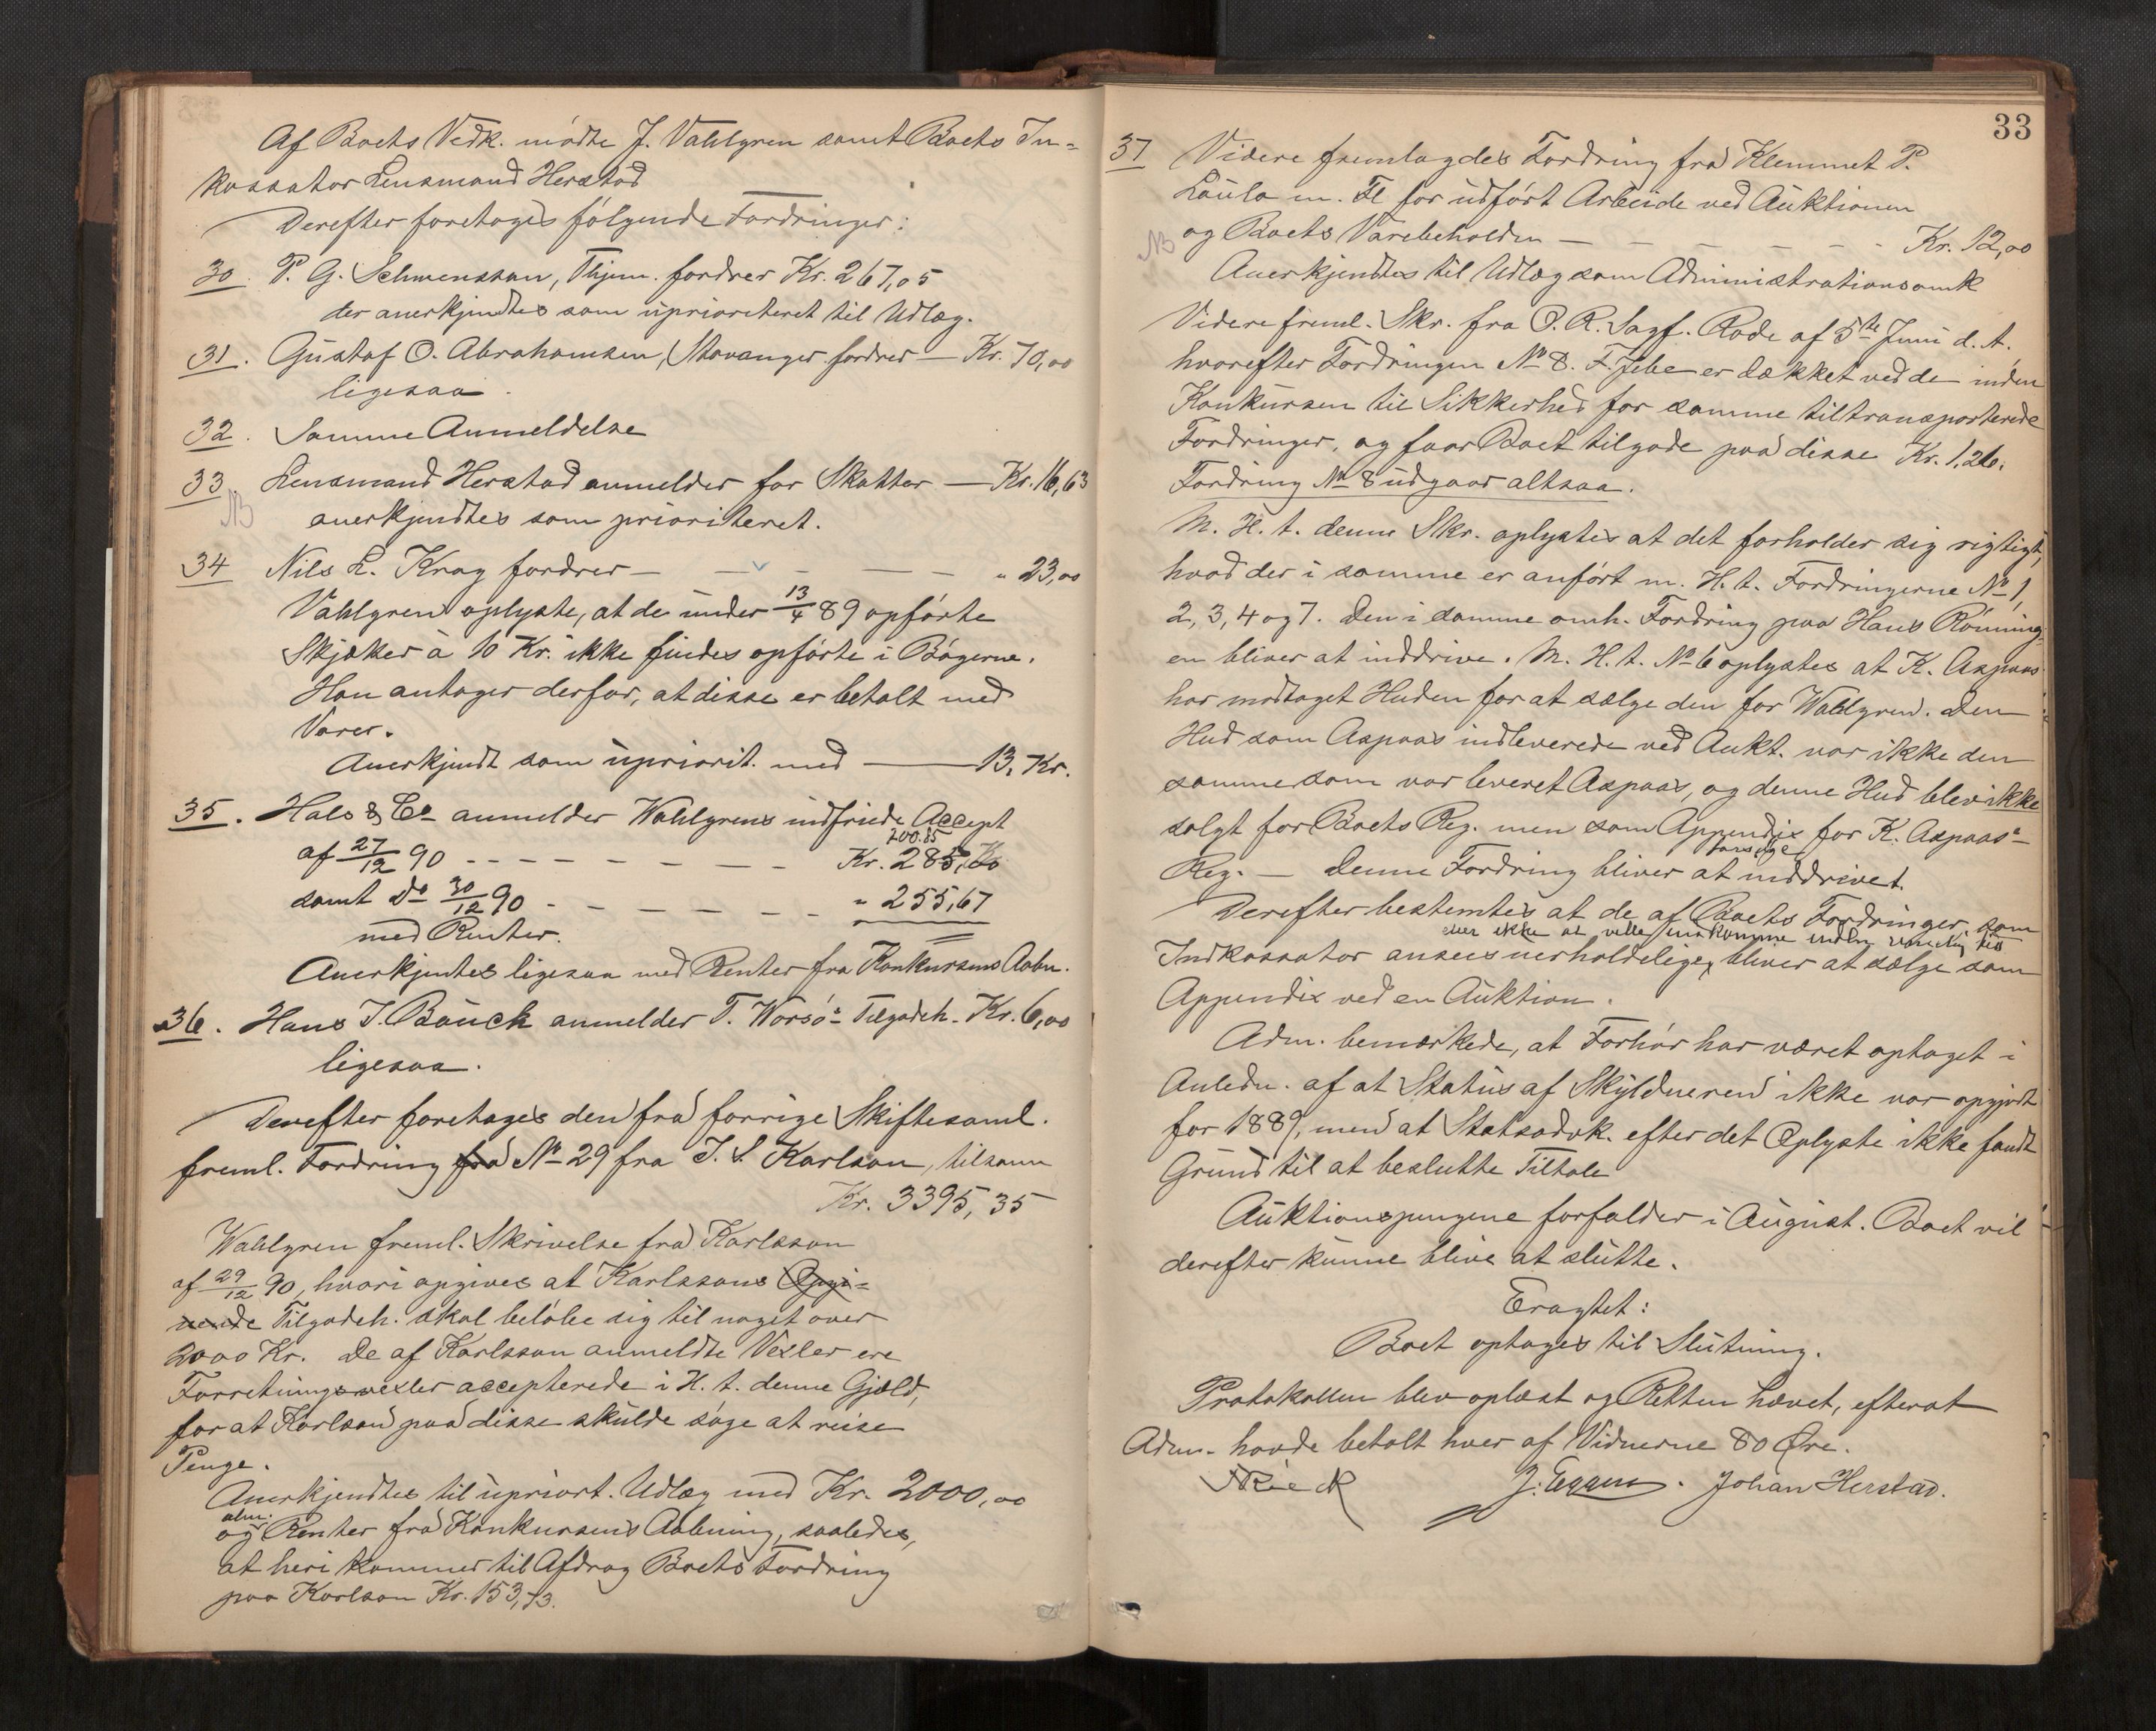 Af Boets Vedk. mødte J. Vahlgren samt Boets In-
kassator Lensmand Herstad
Derefter foretoges følgende Fordringer:
30. P. G. Schwensson, Thjem. fordrer Kr. 267,05
der anerkjendtes som uprioriteret til Udlæg.
31. Gustaf O. Abrahamsen, Stavanger fordrer — Kr. 70,00
ligesaa.
32. Samme Anmeldelse
33 Lensmand Herstad anmelder for Skatter — Kr. 16,63
NB anerkjendtes som prioriteret.
34 Nils L. Krag fordrer — — — — — „ 23,00
Vahlgren oplyste, at de under 13/4 89 opførte
Skjæker à 10 Kr. ikke findes opførte i Bøgerne.
Han antager derfor, at disse er betalt med
Varer.
Anerkjendt som upriorit. med — 13, Kr.
35. Hals & Co anmelder Wahlgrens indfriede Accept
200.85
af 27/12 90 - - - - - - - - Kr. 285,80
samt do 30/12 90 - - - - - - - „ 255,67
med Renter.
Anerkjentes ligesaa med Renter fra Konkursens Aabn.
36. Hans J. Bauck anmelder T. Worsøs Tilgodeh. Kr. 6,00
ligesaa.
Derefter foretages den fra forrige Skiftesaml.
freml. Fordring fra No 29 fra J. S. Karlson, tilsam
Kr. 3395,35
Wahlgren freml. Skrivelse fra Karlsson
af 29/12 90, hvori opgives at Karlssons Opgi-
vende Tilgodeh. skal beløbe sig til noget over
2000 Kr. De af Karlsson anmeldte Vexler ere
Forretningsvexler accepterede i H. t. denne Gjæld,
for at Karlson paa disse skulde søge at reise
Penge.
Anerkjendtes til upriort. Udlæg med Kr. 2000,00
alm.
og Renter fra Konkursens Aabning, saaledes,
at heri kommer til Afdrag Boets Fordring
paa Karlson Kr. 153,73.
33
37 Videre fremlagdes Fordring fra Klemmet P.
Laula m. Fl for udført Arbeide ved Auktionen
NB og Boets Varebeholdn — — — — — Kr. 12,00
Anerkjendtes til Udlæg som Administrationsomk
Videre freml. Skr. fra O. R. Sagf. Rode af 5te Juni d. A.
hvorefter Fordringen No 8. F. Jebe er dækket ved de inden
Konkursen til Sikkerhed for samme tiltransporterede
Fordringer, og faar Boet tilgode paa disse Kr. 1,26.
Fordring No 8 udgaar altsaa.
M. H. t. denne Skr. oplystes at det forholder sig rigtigt,
hvad der i samme er anført m. H. t. Fordringerne No 1,
2, 3, 4 og 7. Den i samme omh. Fordring paa Hans Rønning-
en bliver at inddrive. M. H. t. No 6 oplystes at K. Aspaas
har modtaget Huden for at sælge den for Wahlgren. Den
Hud som Aspaas indleverede ved Aukt. var ikke den
samme som var leveret Aspaas, og denne Hud blev ikke
solgt for Boets Reg. men som Appendix for K. Aspaas's
forsøge
Reg. — Denne Fordring bliver at inddrivet.
Derefter bestemtes at de af Boets Fordringer, som
eller ikke at ville indkomme inden rimelig tid
Indkassator ansees uerholdelige, bliver at sælge som
Appendix ved en Auktion.
Adm. bemærkede, at Forhør har været optaget i
Anledn. af at Status af Skyldneren ikke var opgjort
for 1889, men at Statsadvk. efter det Oplyste ikke fandt
Grund til at beslutte Tiltale
Auktionspengene forfalder i August. Boet vil
derefter kunne blive at slutte.
Eragtet:
Boet optages til Slutning.
Protokollen blev oplæst og Retten hævet, efterat
Adm. havde betalt hver af Vidnerne 80 Øre.
J. Eggen. Johan Herstad.